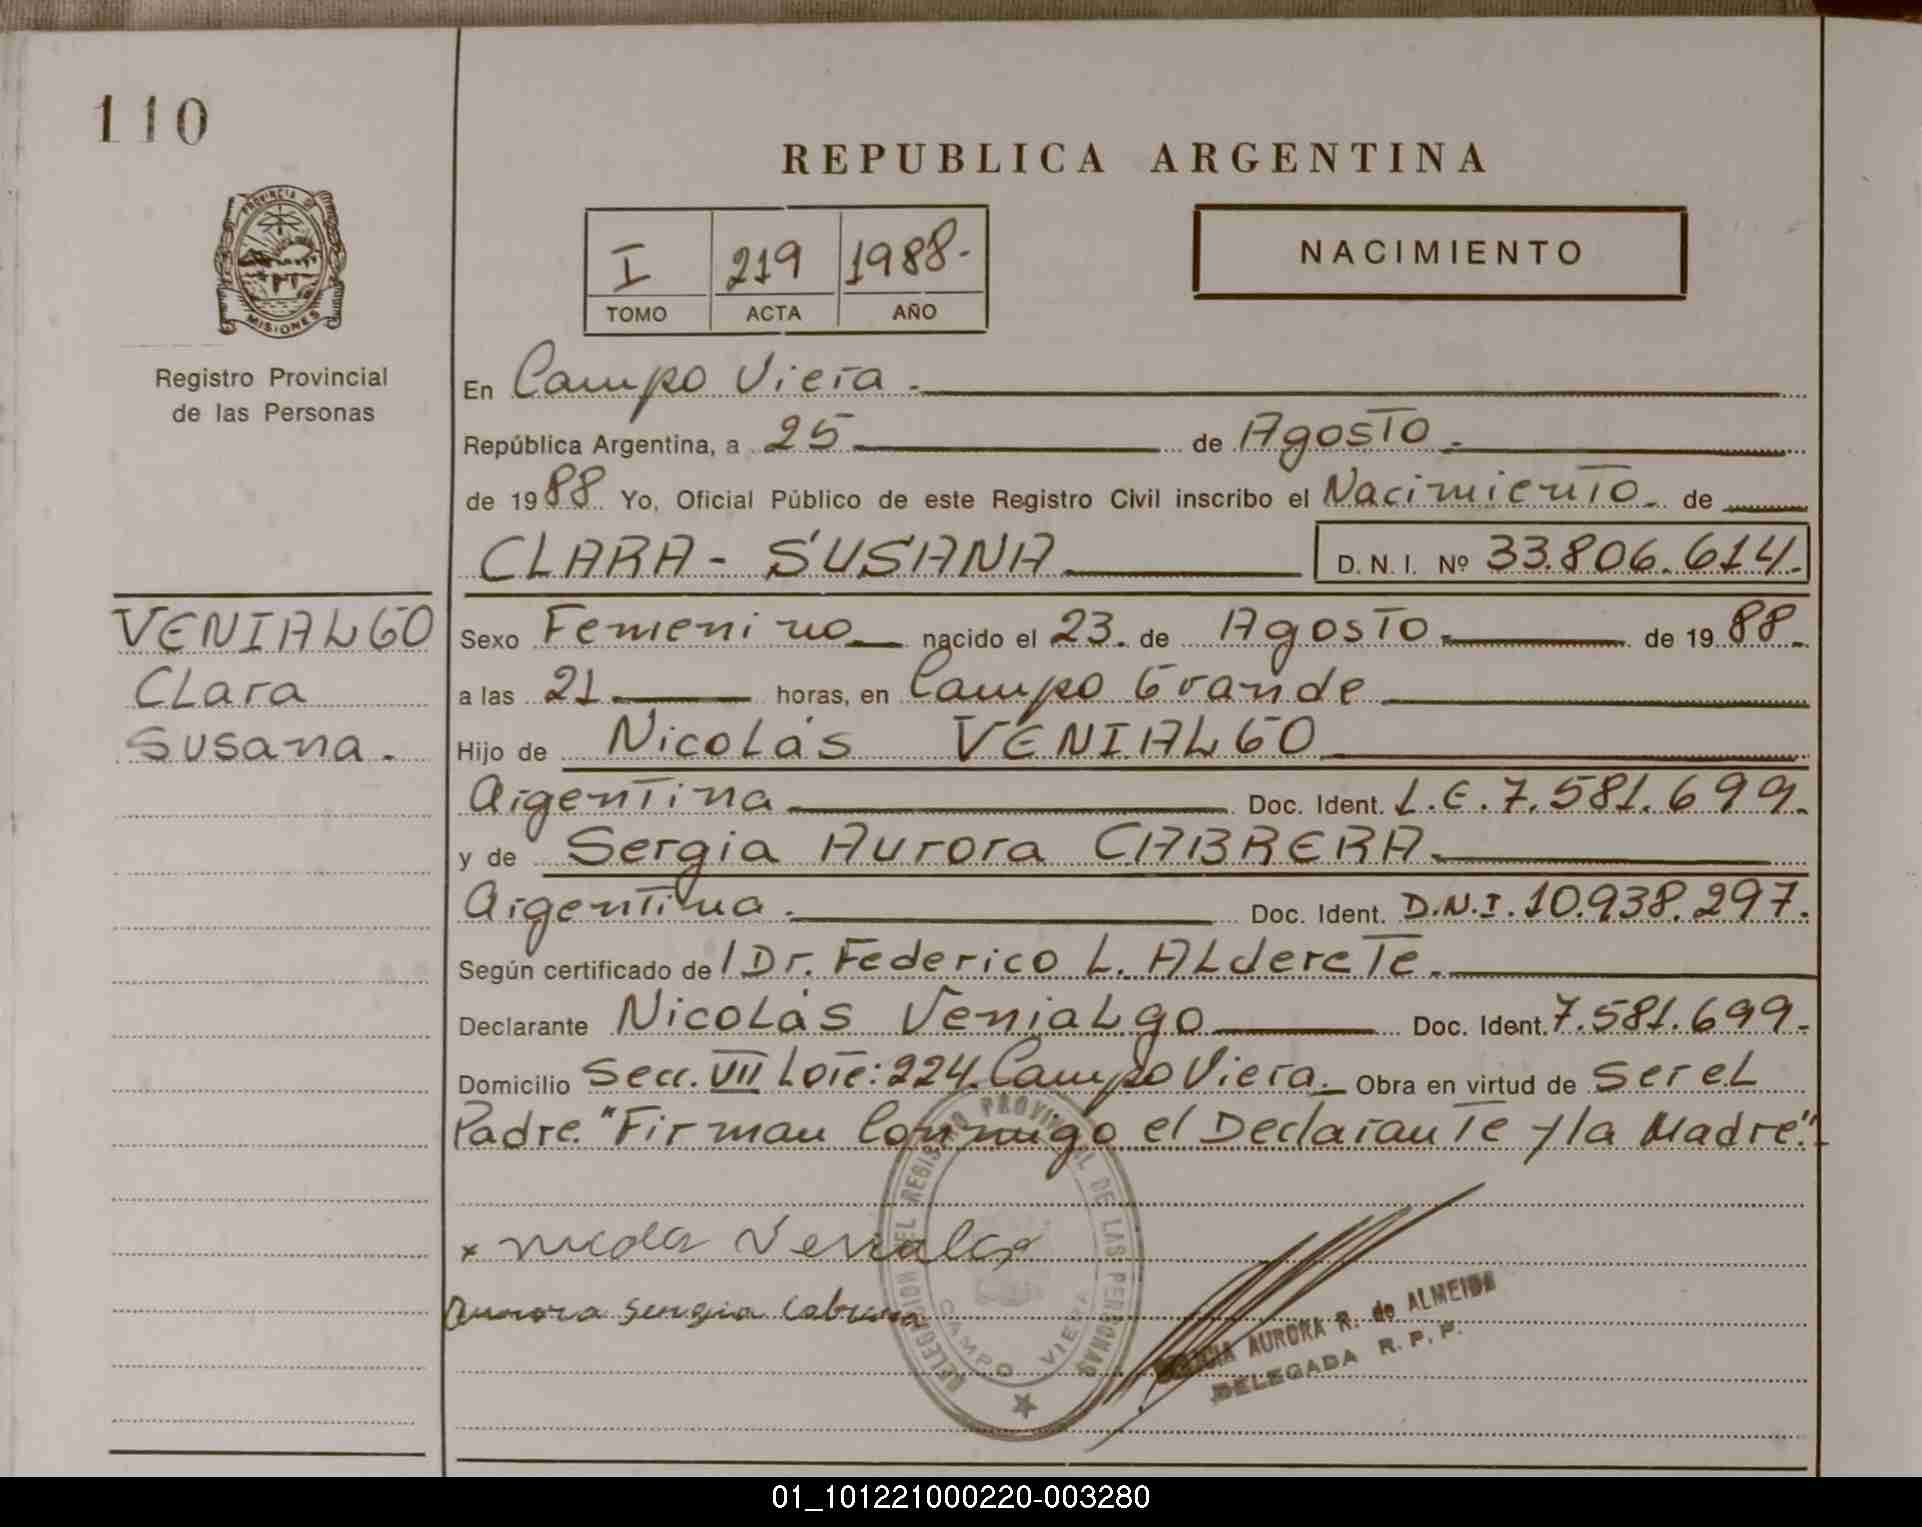 110
PROVINCIA DE
MISIONES
Registro Provincial
de las Personas
VENIALGO
Clara
Susana.
REPUBLICA ARGENTINA
I 219 1988.-
TOMO ACTA AÑO
NACIMIENTO
En Campo Viera.
República Argentina, a 25 de Agosto.-
de 1988. Yo, Oficial Público de este Registro Civil inscribo el Nacimiento de
CLARA - SUSANA D. N. I. Nº 33.806.614.-
Sexo Femenino nacido el 23. de Agosto.- de 1988.-
a las 21 horas, en Campo Grande
Hijo de Nicolás VENIALGO
Argentina Doc. Ident. L.E. 7.581.699.-
y de Sergia Aurora CABRERA.
Argentina. Doc. Ident. D.N.I. 10.938.297.
Según certificado del Dr. Federico L. ALdereTe.
Declarante Nicolás Venialgo Doc. Ident. 7.581.699.-
Domicilio Secc. VII Lote: 224. Campo Viera. Obra en virtud de ser el
Padre. "Firman Conmigo el Declarante y la Madre".-
DELEGACION DEL REGISTRO PROVINCIAL DE LAS PERSONAS
CAMPO VIERA
x Nicolas Venialgo
Aurora Sergia Cabrera
AURORA R. de ALMEIDA
DELEGADA R. P. P.
01_101221000220-003280